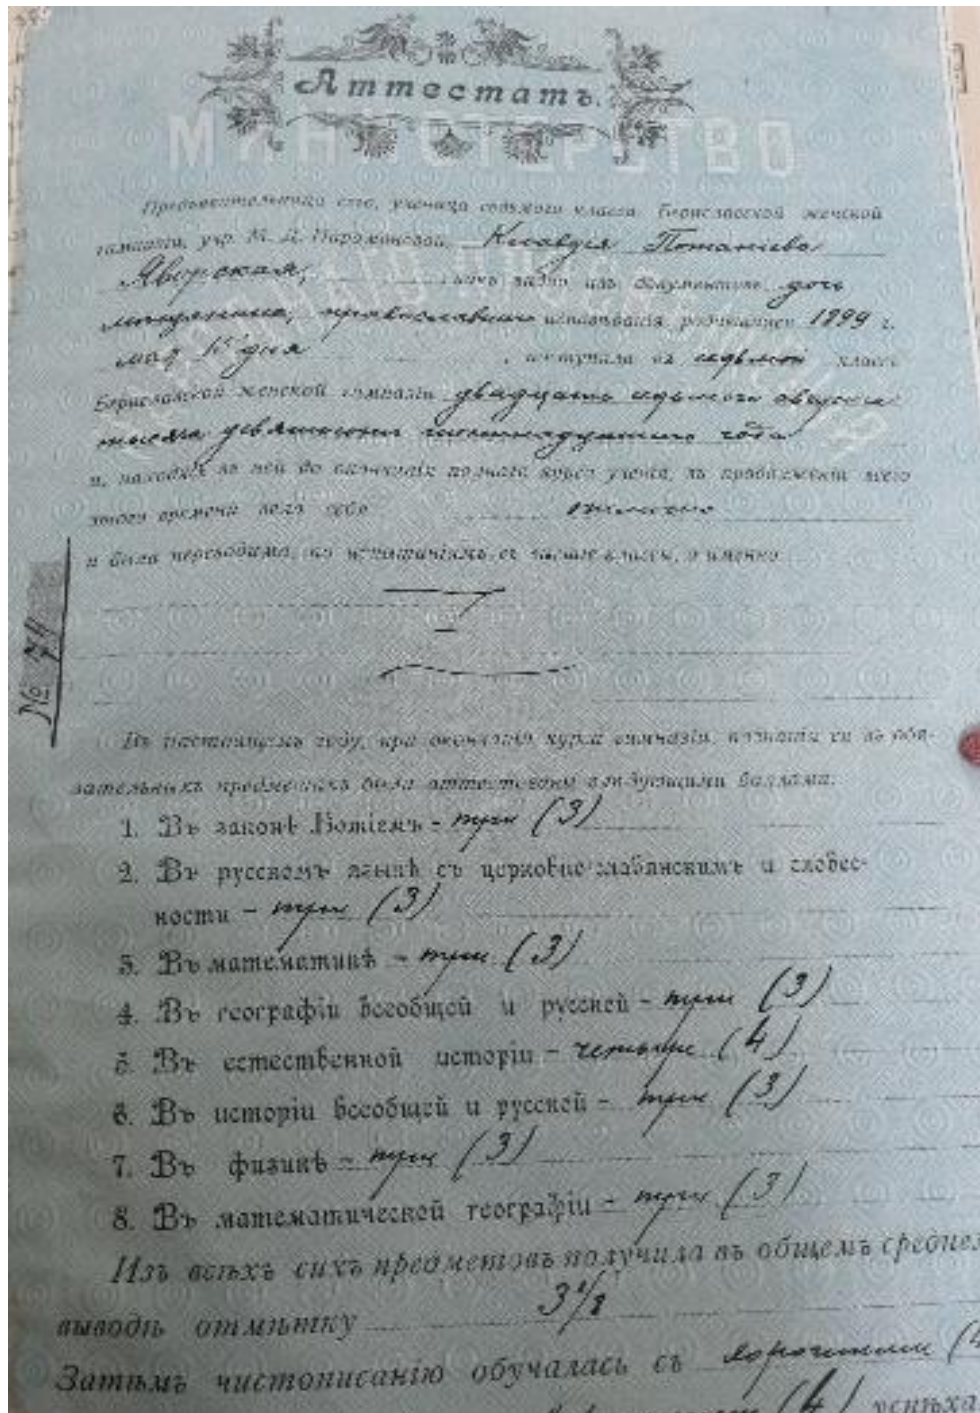 Аттестатъ.
МИНИСТЕРСТВО
Предъявительница сего, ученица седьмого класса Бериславской женской
гимназіи, учр. М. Д. Парамоновой, Клавдія
Яворская, какъ видно изъ документовъ, дочь
мѣщанина, православнаго исповѣданія, родившаяся 1899 г.
мая 15 дня, поступила въ седьмой классъ
Бериславской женской гимназіи двадцать седьмого августа
тысяча девятьсотъ шестнадцатаго года
и, находясь въ ней до окончанія полнаго курса ученія, въ продолженіи всего
этого времени вела себя отлично
и была переводима, по испытаніямъ, въ высшіе классы, а именно:
№ 74
Въ настоящемъ году, при окончаніи курса гимназіи, познанія ея въ обя-
зательныхъ предметахъ были аттестованы слѣдующими баллами:
1. Въ законѣ Божіемъ - три (3)
2. Въ русскомъ языкѣ съ церковно-славянскимъ и словес-
ности - три (3)
3. Въ математикѣ - три (3)
4. Въ географіи всеобщей и русской - три (3)
5. Въ естественной исторіи - четыре (4)
6. Въ исторіи всеобщей и русской - три (3)
7. Въ физикѣ - три (3)
8. Въ математической географіи - три (3)
Изъ всѣхъ сихъ предметовъ получила въ общемъ среднем
выводѣ отмѣтку 3 1/8
Затѣмъ чистописанію обучалась съ хорошими (4
(4) успѣха